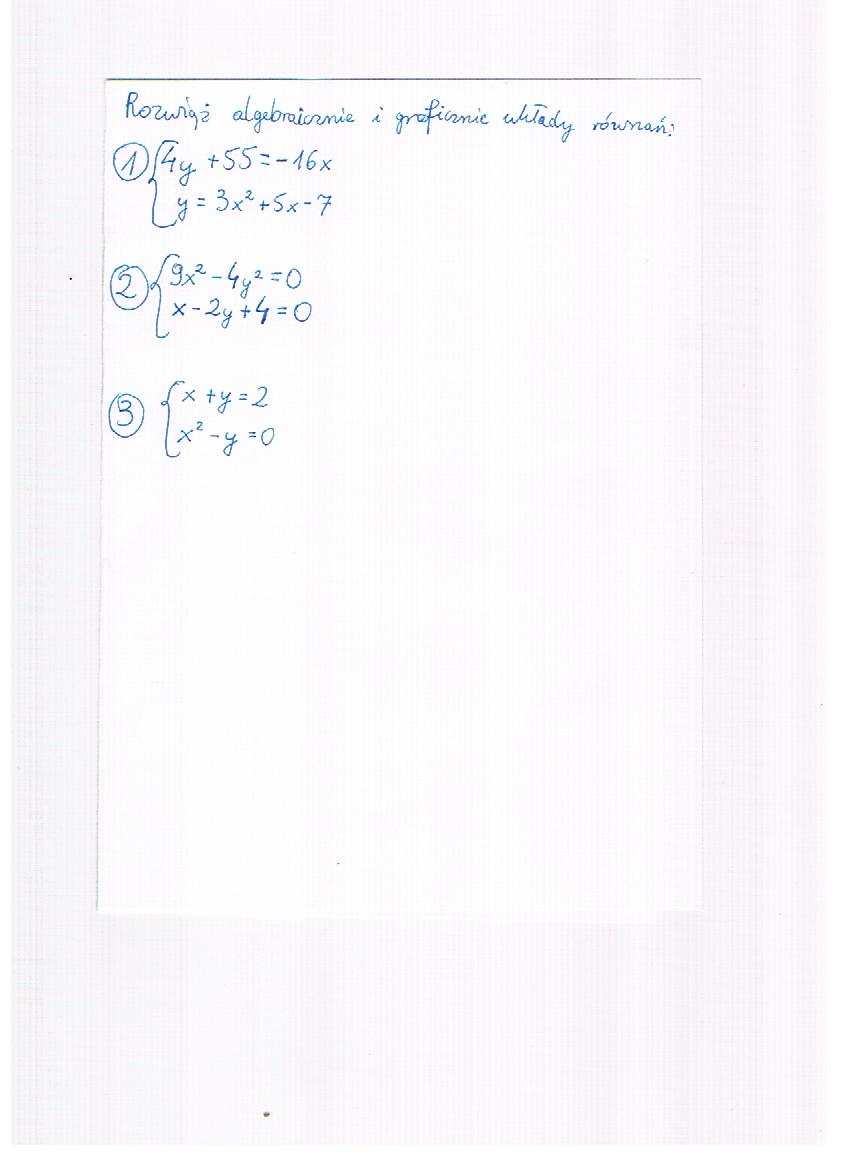 Rozwiąż algebraicznie i graficznie układy równań:
① { 4y + 55 = -16x
y = 3x² + 5x - 7
② { 9x² - 4y² = 0
x - 2y + 4 = 0
③ { x + y = 2
x² - y = 0